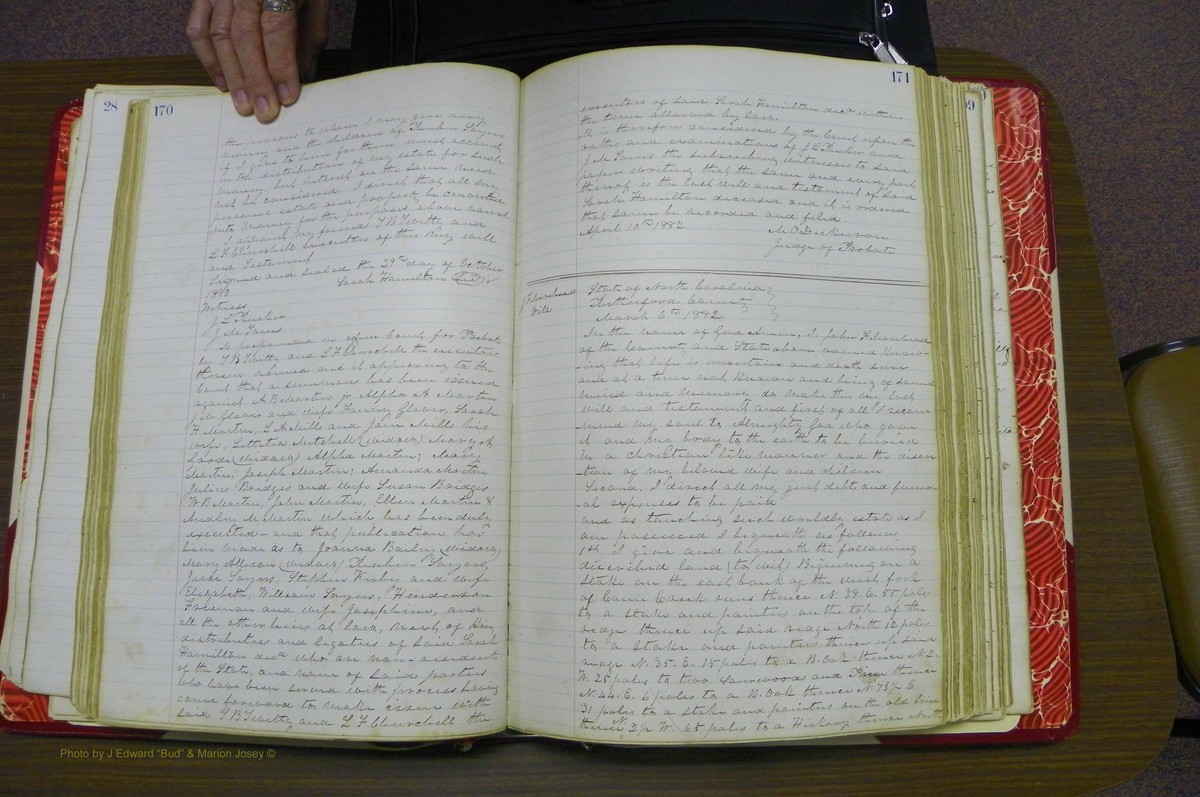 28
170
the means to whom I may give any
money and the children of Reuben Sayers
if I give to him for them, must account
in the distribution of my estate for such
money, but interest on the same need
not be counted. I direct that all my
personal estate and property be converted
into money for the purposes above named
I appoint my friend T B Twitty and
L F Churchill executors of this my will
and Testament
Signed and sealed the 29th day of October
1880 Sarah Hamilton
Witness
J L Rucker
J M
Is propounded in open Court for Probate
by T B Twitty and L F Churchill the executors
therein named and it appearing to the
Court that a summons has been issued
against A B Martin Jr Alpha A Martin
J W Glover and wife Fanny Glover, Sarah
H Martin, L A Mills and Jane Mills his
wife, Lettitia Mitchell (widow) Mary A
Goode (widow) Alpha Martin; Mary
Martin, Joseph Martin; Amanda Martin
Julius Bridges and wife Susan Bridges
W B Martin, John Martin, Elbert Martin &
M Martin which has been duly
executed - and that publication has
been made as to Joanna Bailey (widow)
Mary Allison (widow) Reuben Sayers,
Sayers, Stephen Kirby and wife
Elizabeth, William Sayers, Henderson
Freeman and wife Josephine, and
all the other heirs at law, next of kin,
distributees and legatees of said Sarah
Hamilton decd who are non-residents
of the State, and none of said parties
who have been served with process having
come forward to make issue with
said T B Twitty and L F Churchill the
171
executors of said Sarah Hamilton decd within
the time allowed by law.
It is therefore considered by the Court upon the
oaths and examinations of J L Rucker and
J M the subscribing witnesses to said
paper writing that the same and every part
thereof is the last will and testament of said
Sarah Hamilton deceased and it is ordered
that same be recorded and filed
April 10th 1882 M O Dickerson
Judge of Probate
J F Morehead
Will
State of North Carolina
Rutherford County
March 6th 1882
In the name of God Amen, I, John F Morehead
of the County and State above named Know-
-ing that life is uncertain and death sure
and at a time not Known and being of sound
mind and memory do make this my last
will and testament and first of all I recom
mend my soul to Almighty God who gave
it and my body to the earth to be buried
in a christian like manner and the discre
-tion of my beloved wife and children
Second. I direct all my just debts and funer
-al expenses to be paid
and as touching such worldly estate as I
am possessed I bequeath as follows,
1st I give and bequeath the following
described land (to wit) Beginning on a
stake on the east bank of the west fork
of Cane Creek runs thence N. 38. E. 55 poles
to a stake and pointers on the top of the
ridge thence up said ridge North 12 poles
to a stake and pointers thence up said
ridge N. 35. E. 15 poles to a B. Oak thence N. 2.
W. 25 poles to two Sourwoods and Pine thence
N. 44. E. 6 poles to a B. Oak thence N. 73½ E
31 poles to a stake and pointers on the old line
thence N. 3½ W. 65 poles to a Hickory thence North
99
Photo by J Edward "Bud" & Marion Josey ©